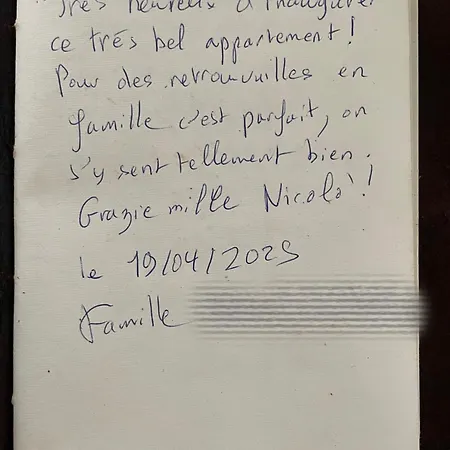 Très heureux d'inaugurer
ce très bel appartement !
Pour des retrouvailles en
famille c'est parfait, on
s'y sent tellement bien.
Grazie mille Nicolò !
le 19/04/2025
Famille